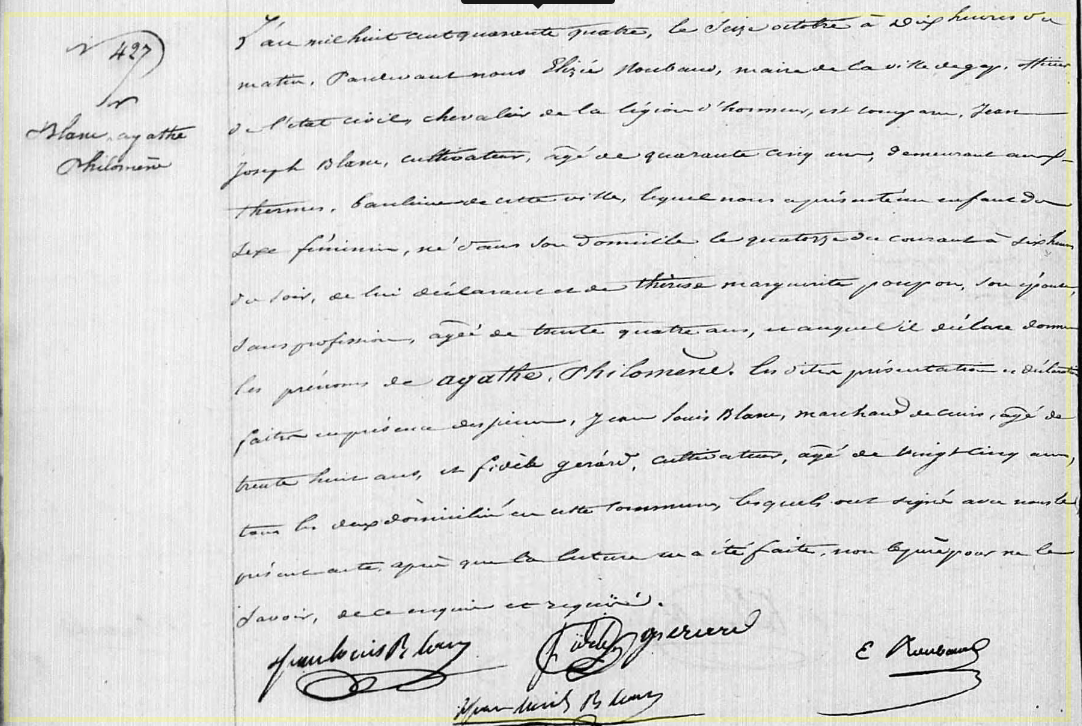 N° 427
Blanc, agathe
Philomène
L'an mil huit cent quarante quatre, le Seize octobre à Dix heures du
matin, Pardevant nous Elizée Roubaud, maire de la ville de gap, officier
de l'état civil, chevalier de la légion d'honneur, est comparu, Jean
Joseph Blanc, cultivateur, âgé de quarante cinq ans, demeurant aux
thermes, banlieue de cette ville, lequel nous a présenté un enfant du
sexe féminin, né dans son domicile le quatorze du courant à six heures
du soir, de lui déclarant et de thérèse marguerite poupon, son épouse,
sans profession, âgée de trente quatre ans, et auquel il déclare donner
les prénoms de agathe, Philomène. les dites présentation et déclaration
faites en présence des sieurs, Jean louis Blanc, marchand de cuirs, âgé de
trente huit ans, et fidèle gerard, cultivateur, âgé de vingt cinq ans,
tous les deux domiciliés en cette commune, lesquels ont signé avec nous le
présent acte, après que la lecture en a été faite, non le père pour ne le
savoir, de ce enquis et requis.
jean louis Blanc
Fidele gerard
E Roubaud
jean louis Blanc